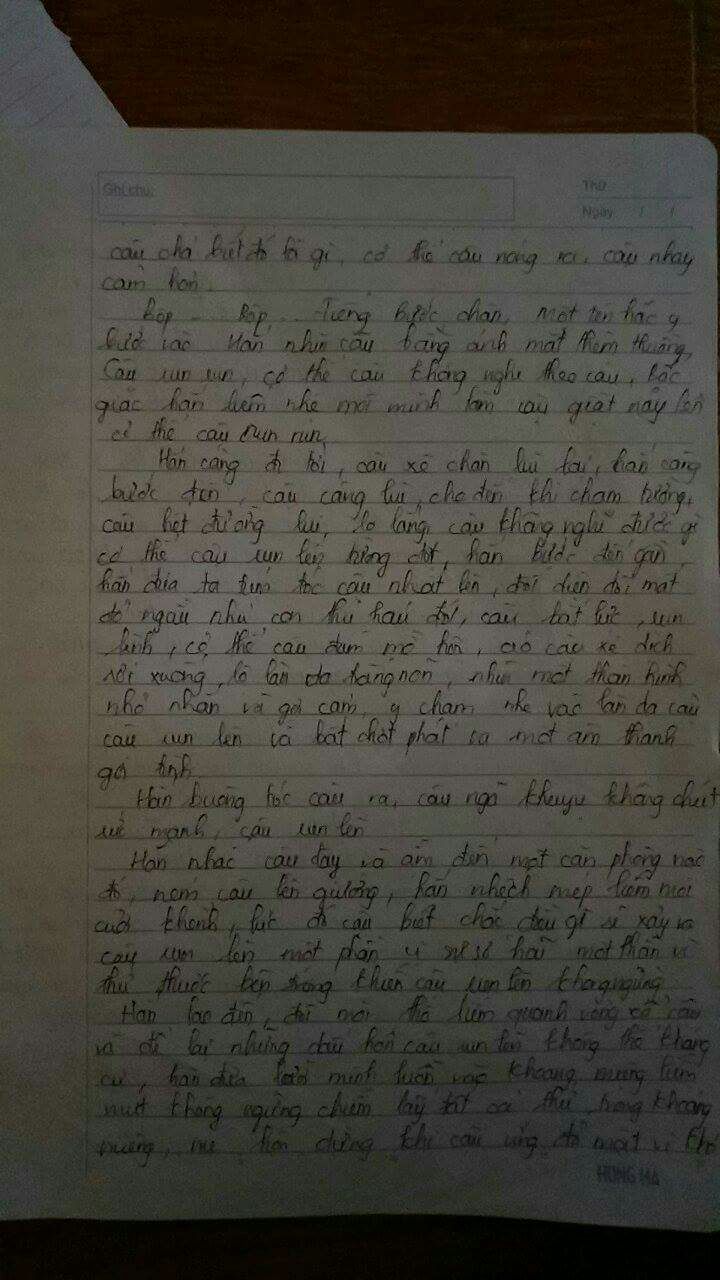 Ghi chú:
Thứ
Ngày / /
cậu chả biết đó là gì, cơ thể cậu nóng ran, cậu nhạy
cảm hơn.
Cộp... Cộp... Tiếng bước chân, một tên hắc y
bước vào. Hắn nhìn cậu bằng ánh mắt thèm thuồng,
Cậu run run, cơ thể cậu không nghe theo cậu, bất
giác hắn liếm nhẹ môi mình làm cậu giật nảy lên
cơ thể cậu run run,
Hắn càng đi tới, cậu xê chân lùi lại, hắn càng
bước đến, cậu càng lùi, cho đến khi chạm tường,
cậu hết đường lui, lo lắng, cậu không nghĩ được gì
cơ thể cậu run lên từng đợt, hắn bước đến gần,
hắn đưa ta túm tóc cậu nhất lên, đối diện đôi mắt
đỏ ngầu như con thú háu đói, cậu bất lực, run
, cơ thể cậu đẫm mồ hôi, áo cậu xê dịch
rơi xuống, lộ làn da trắng nõn, nhìn một thân hình
nhỏ nhắn và gợi cảm, y chạm nhẹ vào làn da cậu
cậu run lên và bất chợt phát ra một âm thanh
gợi tình
Hắn buông tóc cậu ra, cậu ngã khuỵu không chút
sức mạnh, cậu run lên
Hắn nhấc cậu dậy và ẵm đến một căn phòng nào
đó, ném cậu lên giường, hắn nhếch mép liếm môi
cười, lúc đó cậu biết chắc điều gì sẽ xảy ra
cậu run lên một phần vì sợ hãi một phần vì
thứ thuốc bên trong khiến cậu run lên không ngừng
Hắn lao đến, đôi môi liếm quanh vòng cổ cậu
và để lại những dấu hôn cậu run lên không thể kháng
cự, hắn đưa lưỡi mình luồn vào khoang miệng liếm
mút không ngừng chiếm lấy tất cả thứ trong khoang
miệng, hắn dừng khi cậu ửng đỏ mặt vì
HONG HA